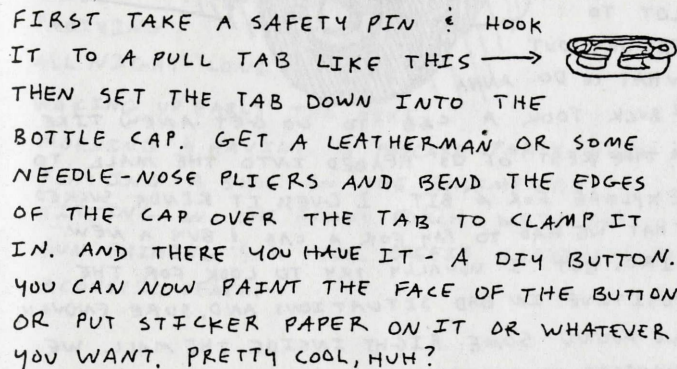 FIRST TAKE A SAFETY PIN & HOOK
IT TO A PULL TAB LIKE THIS →
THEN SET THE TAB DOWN INTO THE
BOTTLE CAP. GET A LEATHERMAN OR SOME
NEEDLE-NOSE PLIERS AND BEND THE EDGES
OF THE CAP OVER THE TAB TO CLAMP IT
IN. AND THERE YOU HAVE IT - A DIY BUTTON.
YOU CAN NOW PAINT THE FACE OF THE BUTTON
OR PUT STICKER PAPER ON IT OR WHATEVER
YOU WANT. PRETTY COOL, HUH?